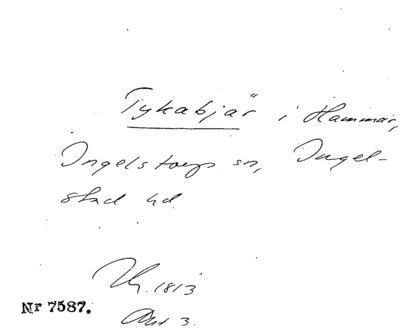 Tykabjär i Hammar,
Ingelstorps sn, Ingel-
stad hd.
1813
Nr 7587.
Akt 3.